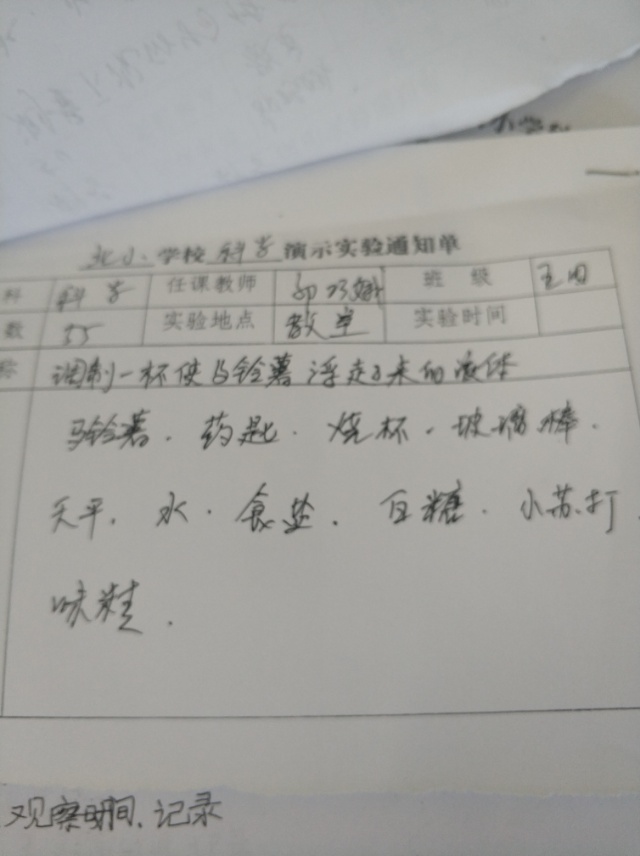 北小 学校 科学 演示实验通知单
科 科学 任课教师 郭乃娥 班级 五四
数 55 实验地点 教室 实验时间
称 调制一杯使马铃薯浮起来的液体
马铃薯、药匙、烧杯、玻璃棒、
天平、水、食盐、白糖、小苏打、
味精、
观察时间、记录